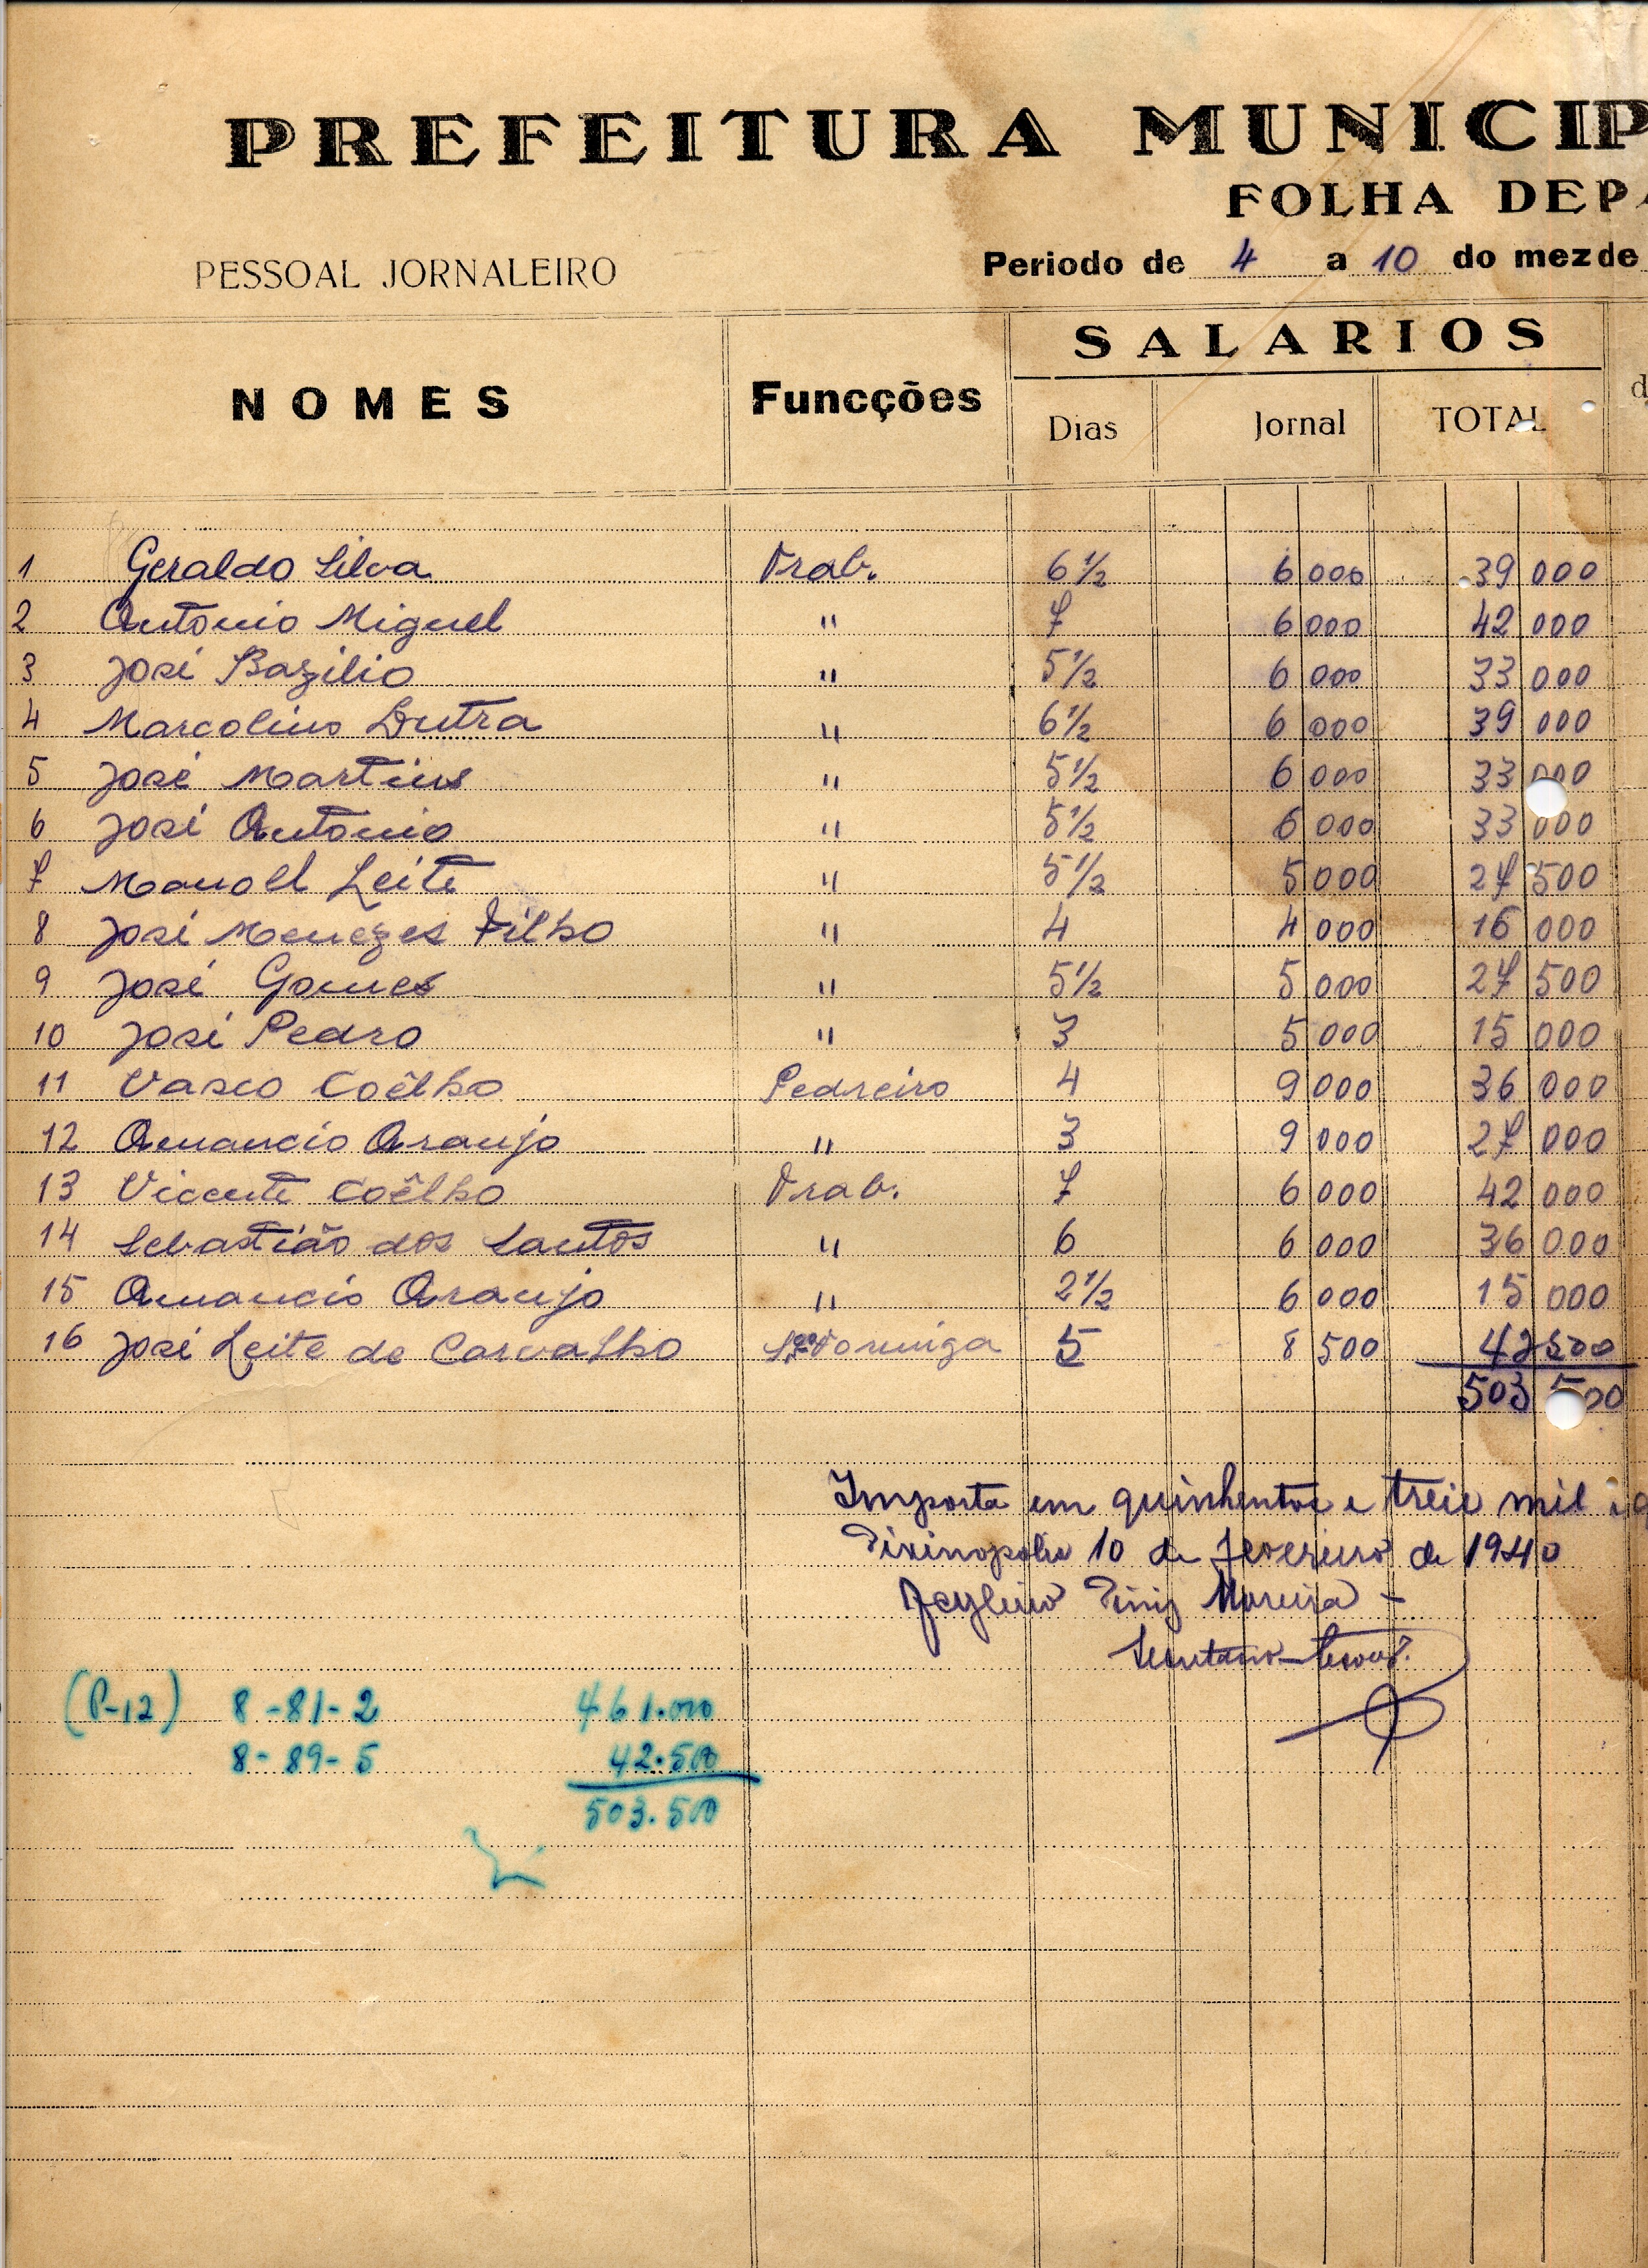 PREFEITURA MUNICIP
FOLHA DE PA
PESSOAL JORNALEIRO
Periodo de 4 a 10 do mez de
NOMES Funcções SALARIOS
Dias Jornal TOTAL d
1 Geraldo Silva Trab. 6 1/2 6 000 39 000
2 Antonio Miguel " 7 6 000 42 000
3 José Bazilio " 5 1/2 6 000 33 000
4 Marcolino Dutra " 6 1/2 6 000 39 000
5 José Martins " 5 1/2 6 000 33 000
6 José Antonio " 5 1/2 6 000 33 000
7 Manoel Leite " 5 1/2 5 000 27 500
8 José Menezes Filho " 4 4 000 16 000
9 José Gomes " 5 1/2 5 000 27 500
10 José Pedro " 3 5 000 15 000
11 Vasco Coêlho Pedreiro 4 9 000 36 000
12 Amancio Araujo " 3 9 000 27 000
13 Vicente Coêlho Trab. 7 6 000 42 000
14 Sebastião dos Santos " 6 6 000 36 000
15 Amancio Araujo " 2 1/2 6 000 15 000
16 José Leite de Carvalho Formiga 5 8 500 42 500
503 500
Importa em quinhentos e treis mil
10 de Fevereiro de 1940
Diniz Moreira -
Secretario-Tesour.
(P-12) 8-81-2 461.000
8-89-5 42.500
503.500